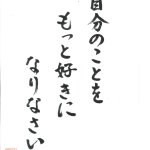 自分のことを
もっと好きに
なりなさい